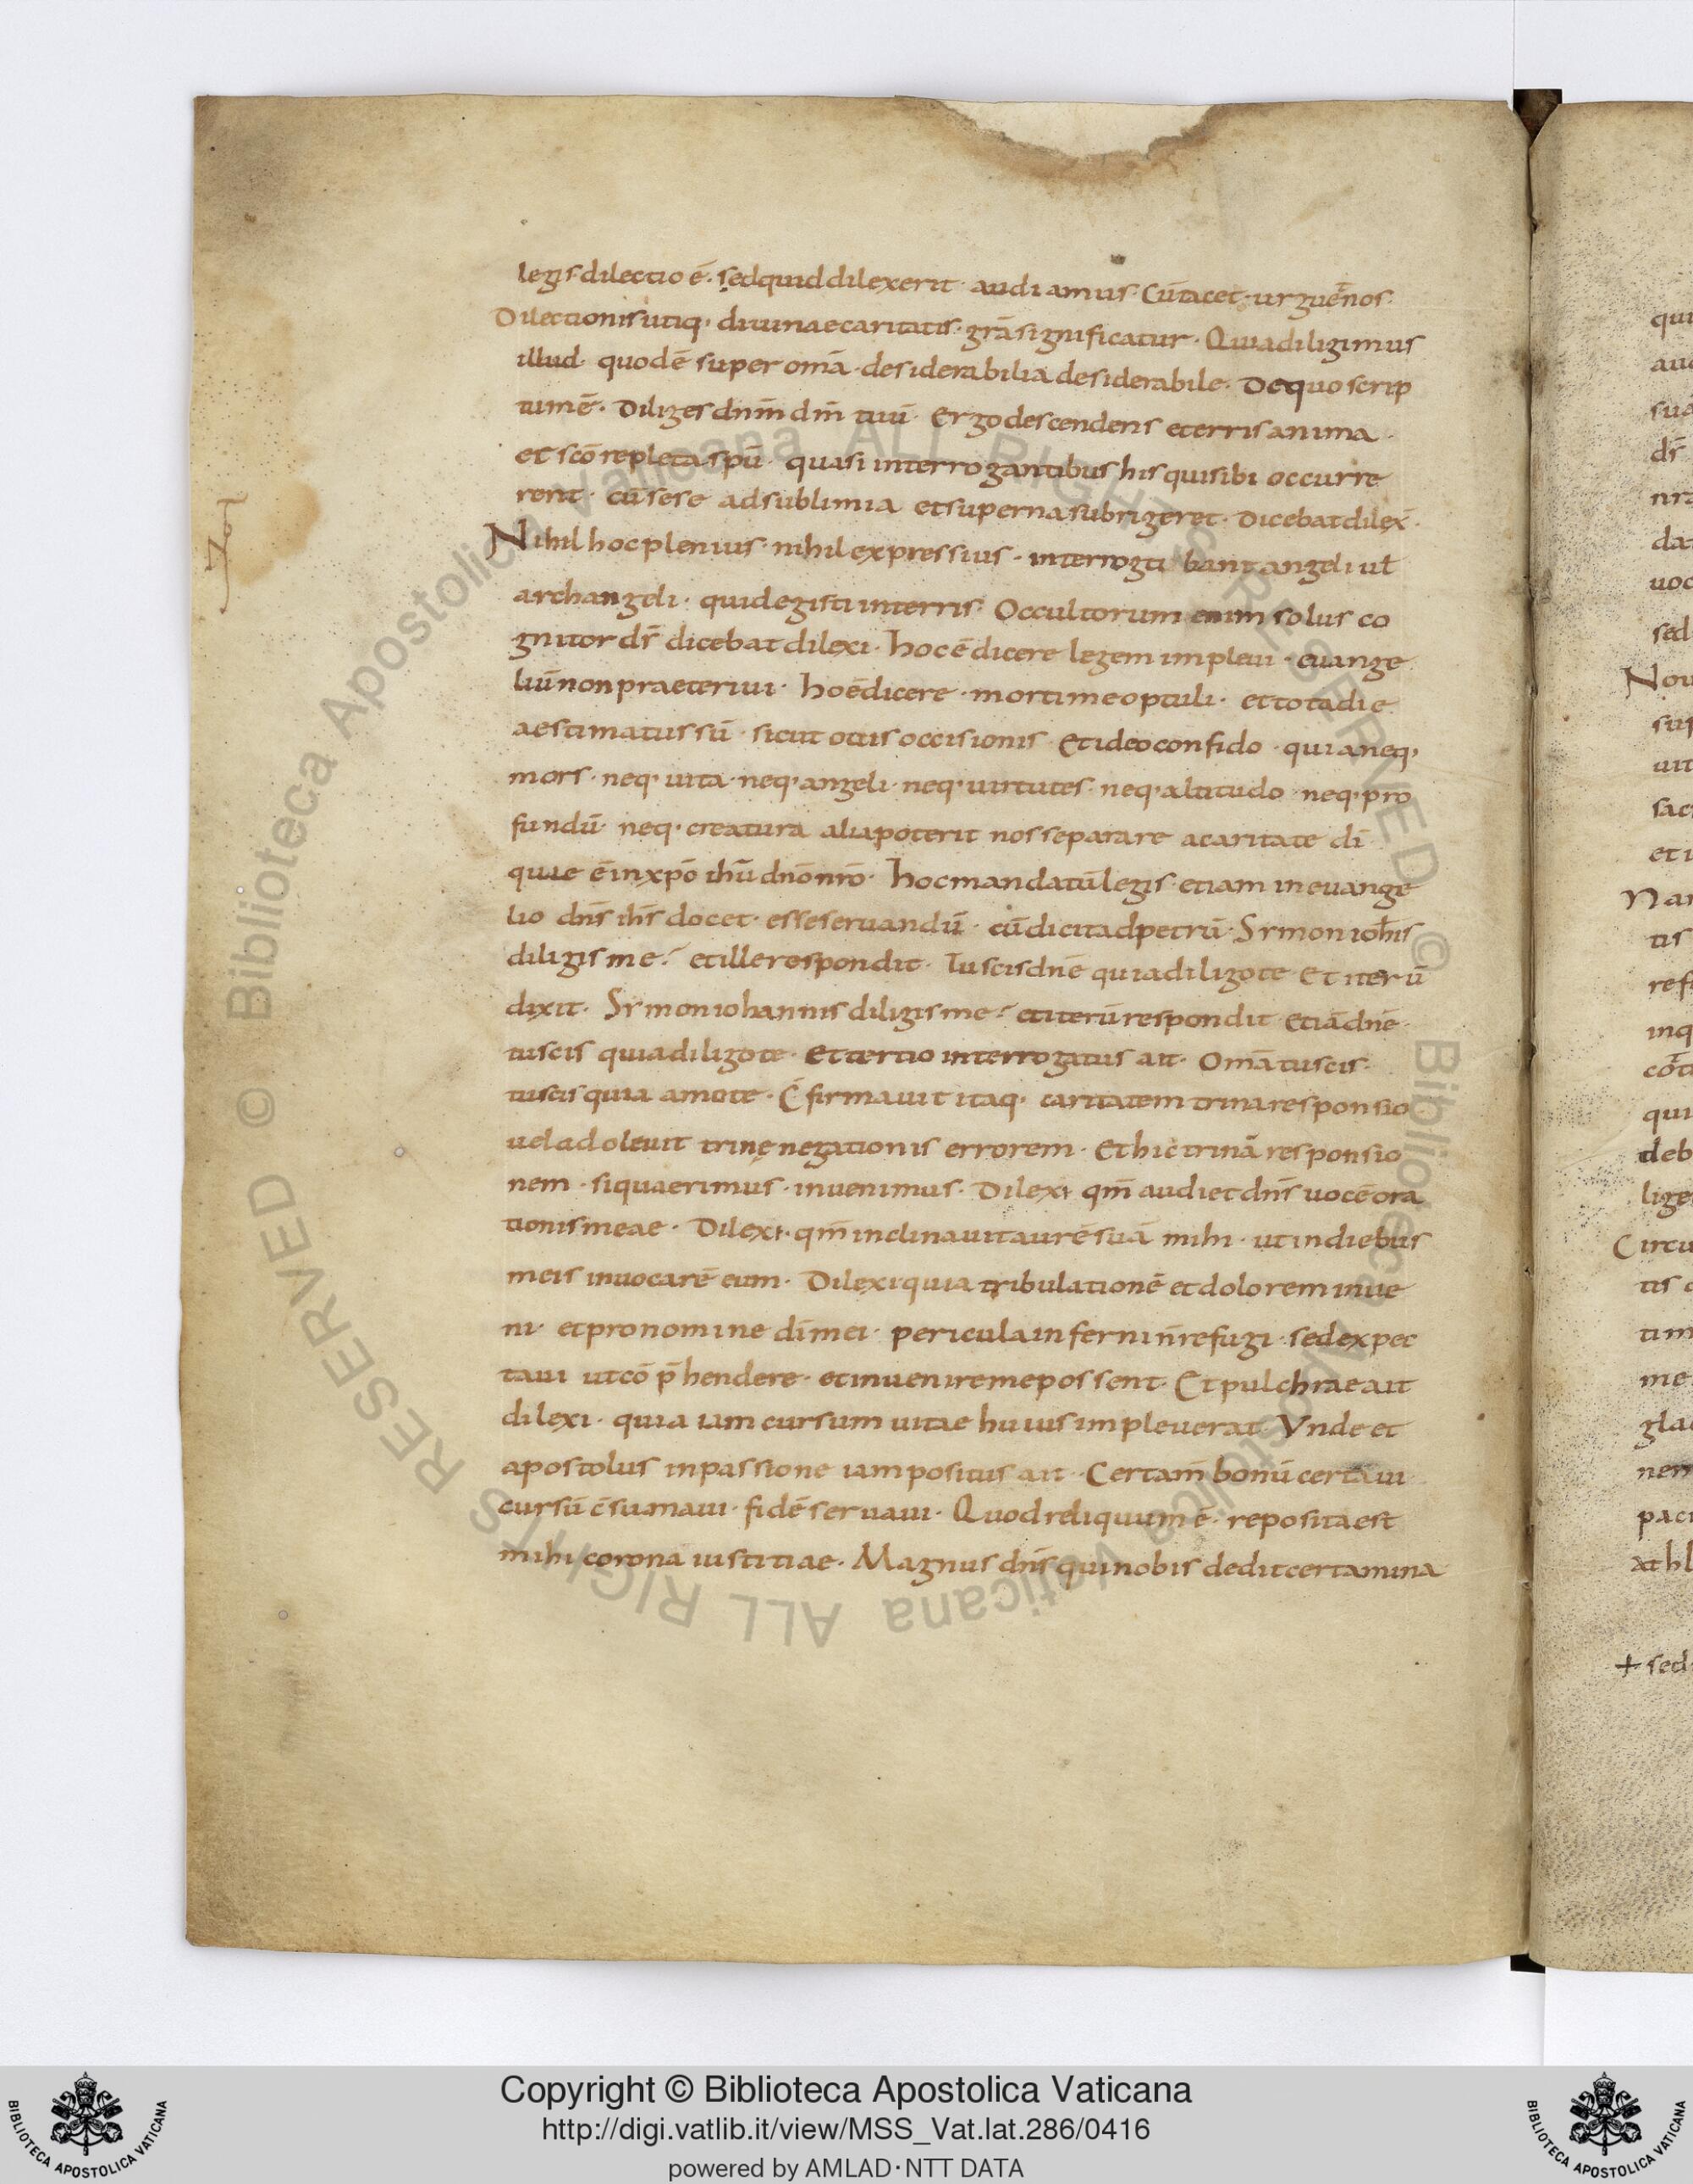 legis dilectio ē. sed quid dilexerit. audiamus. Cū tacet. urguet nos.
Dilectionis utiq; diuinae caritatis. grā significatur. Quia diligimus
illud. quod ē super omā. desiderabilia desiderabile. De quo scrip
tum ē. Diliges dnm dm tuū. Ergo descendens e terris anima.
et scō repleta spū. quasi interrogantibus his qui sibi occurre
rent. cū sese ad sublimia et superna subrigeret. Dicebat dilex.
Nihil hoc plenius. nihil expressius. interroga bant angeli ul
archangeli. quid egisti in terris. Occultorum enim solus co
gnitor ds dicebat dilexi. hoc ē dicere legem impleui. euange
liū non praeteriui. ho ē dicere. morti me optuli. et tota die
aestimatus sū. sicut ouis occisionis. Et ideo confido. quia neq;
mors. neq; uita. neq; angeli. neq; uirtutes. neq; altitudo neq; pro
fundū. neq; creatura alia poterit nos separare a caritate dī
quae ē in xpō ihū dnō nrō. hoc mandatū legis. etiam in euange
lio dns ihs docet. esse seruandū. cū dicit ad petrū. Symon iohis
diligis me? et ille respondit. Tu scis dne quia diligo te. Et iterū
dixit. Symon iohannis diligis me? et iterū respondit. Etiā dne.
tu scis quia diligo te. Et tertio interrogatus ait. Omā tu scis.
tu scis quia amo te. C̄firmauit itaq; caritatem trina responsio
uel adoleuit trinę negationis errorem. Et hic trinā responsio
nem. si quaerimus. inuenimus. Dilexi qm audiet dns uocē ora
tionis meae. Dilexi. qm inclinauit aurē suā mihi. ut in diebus
meis inuocarē eum. Dilexi quia tribulationē et dolorem inue
ni. et pro nomine dī mei. pericula inferni n̄ refugi. sed expec
taui ut cō p̄hendere. et inuenire me possent. Et pulchrae ait
dilexi. quia iam cursum uitae huius impleuerat. Vnde et
apostolus in passione iam positus ait. Certam bonū certaui
cursū c̄sumaui. fidē seruaui. Quod reliquum ē. reposita est
mihi corona iustitiae. Magnus dns qui nobis dedit certamina
Nou
Nar
Circu
+ sed
Copyright © Biblioteca Apostolica Vaticana
http://digi.vatlib.it/view/MSS_Vat.lat.286/0416
powered by AMLAD·NTT DATA
BIBLIOTECA APOSTOLICA VATICANA
BIBLIOTECA APOSTOLICA VATICANA
© Biblioteca Apostolica Vaticana ALL RIGHTS RESERVED © Biblioteca Apostolica Vaticana ALL RIGHTS RESERVED